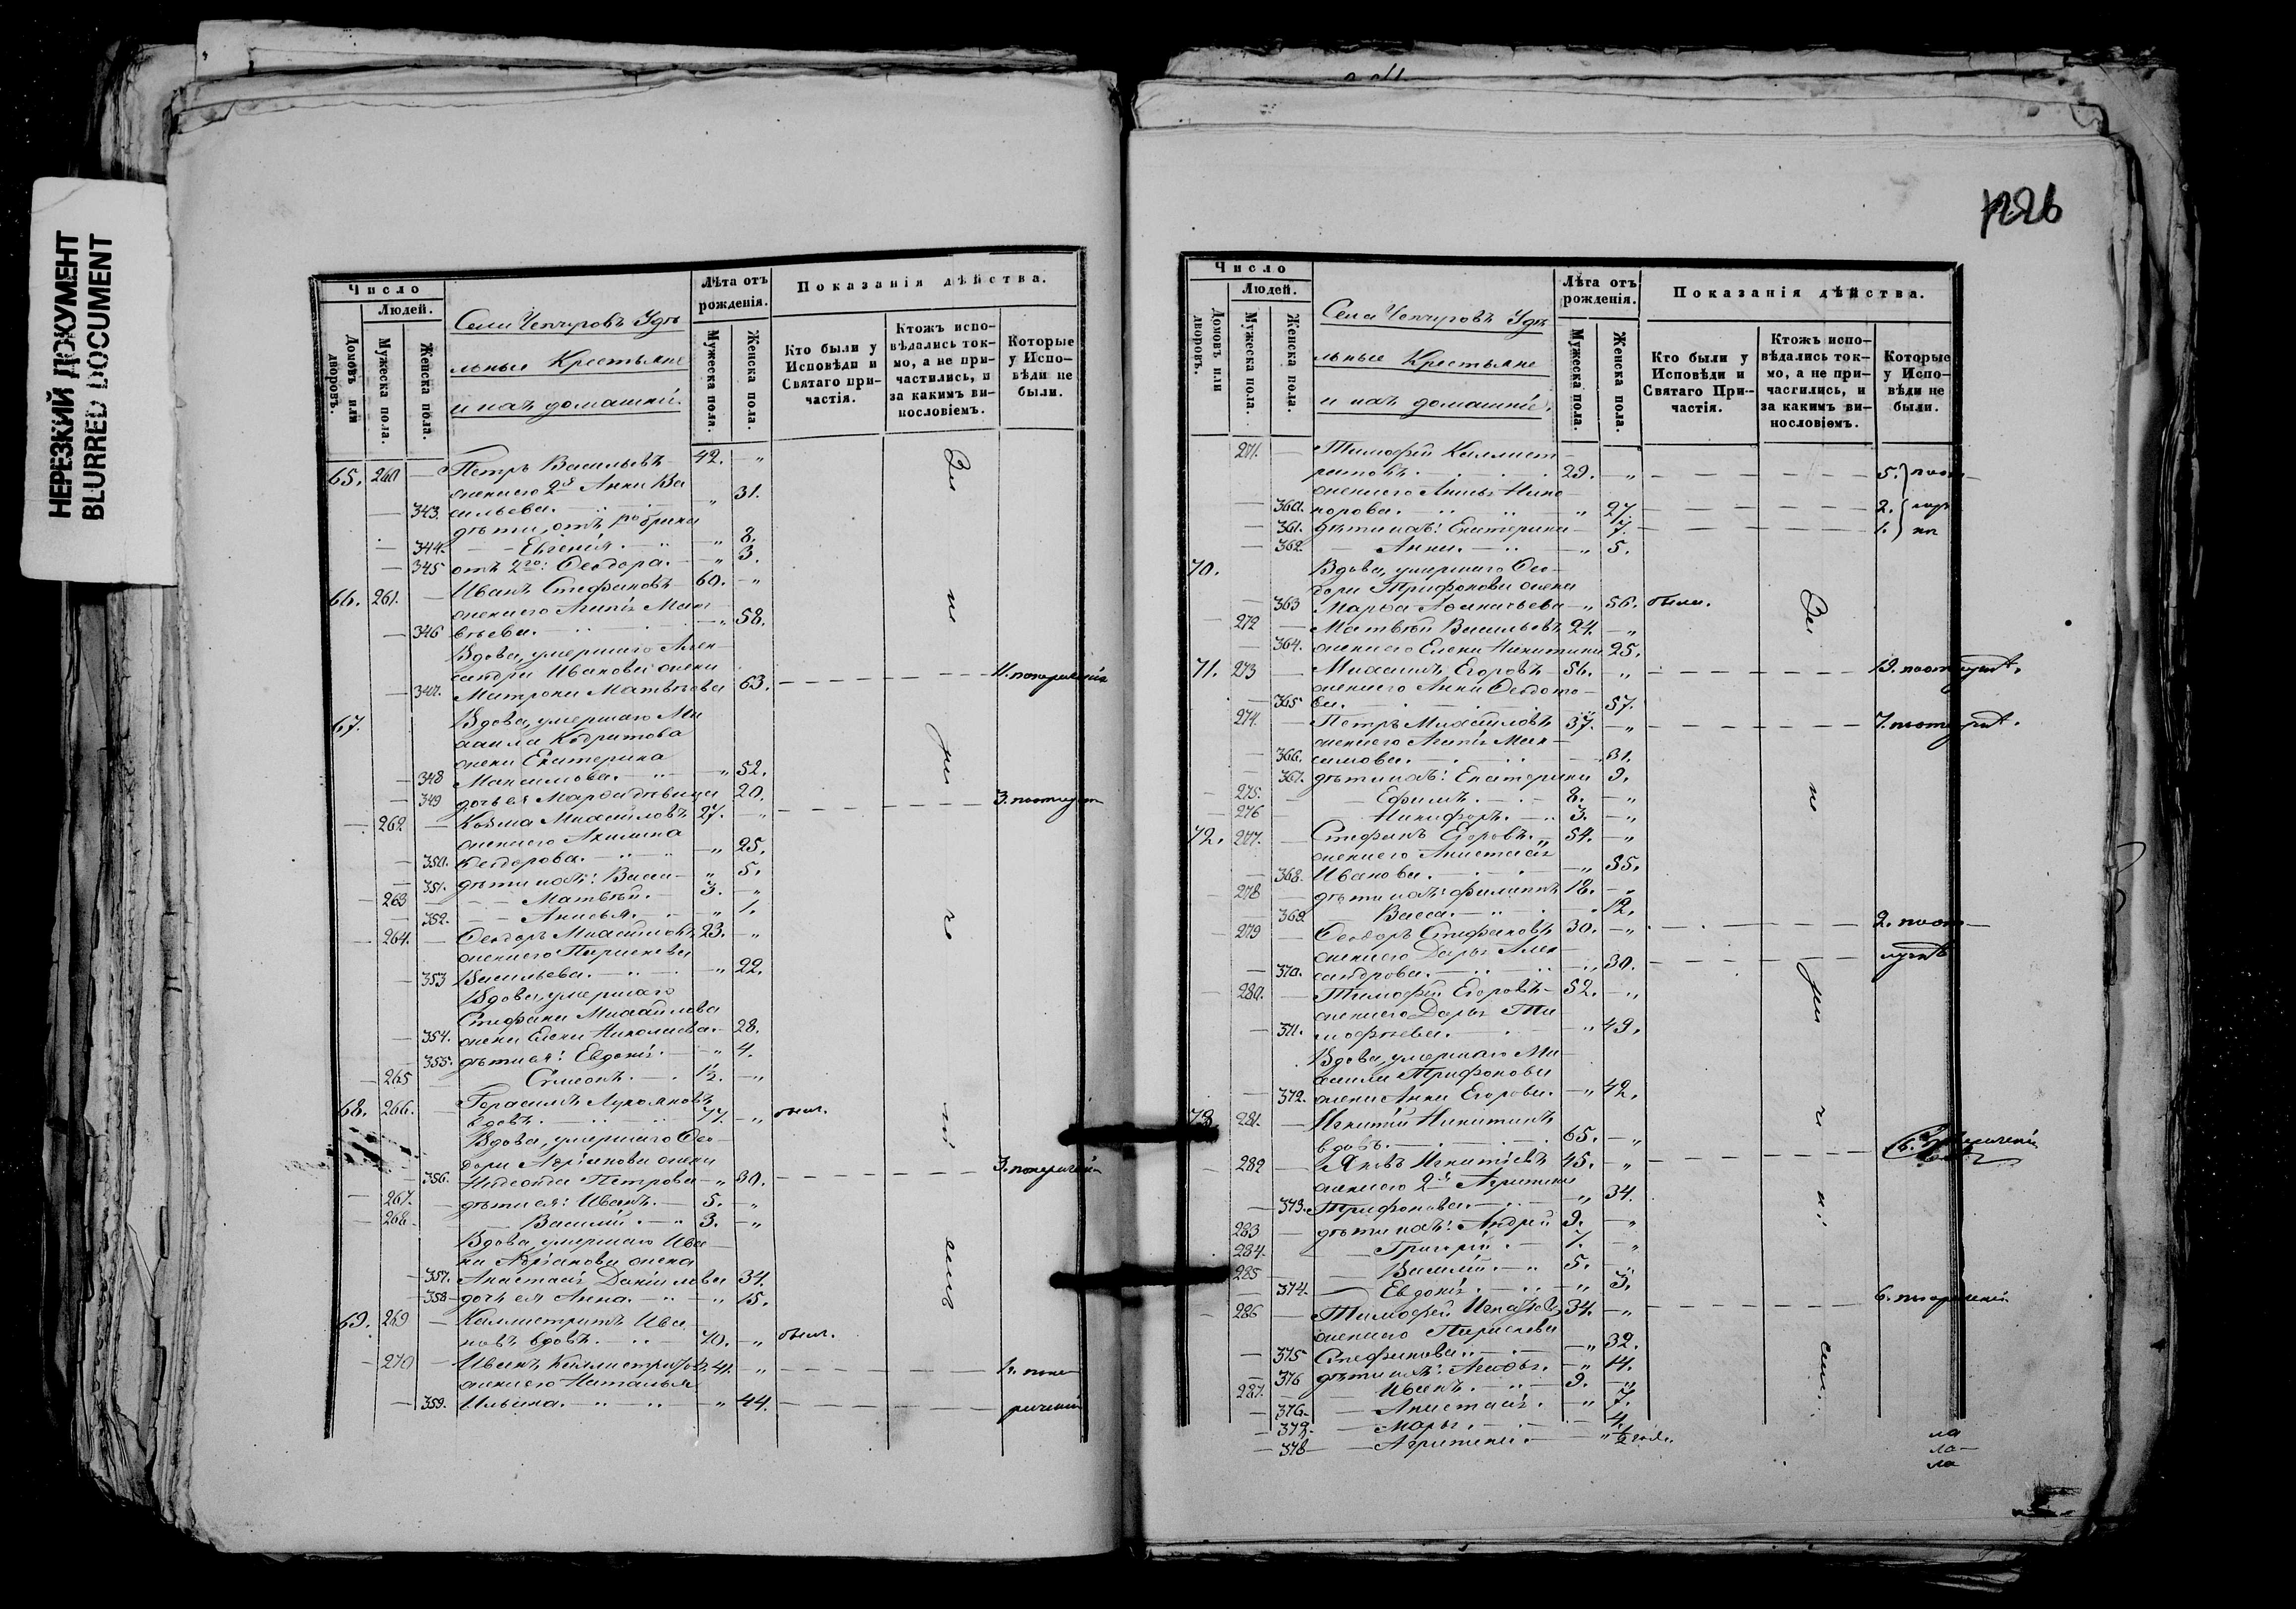 НЕРЕЗКИЙ ДОКУМЕНТ
BLURRED DOCUMENT
Число
Людей.
Домовъ или дворовъ.
Мужеска пола.
Женска пола.
Села Чепчуговъ Удѣ
льные Крестьяне
и ихъ домашніи.
Лѣта отъ рожденія.
Мужеска пола.
Женска пола.
Показанія дѣйства.
Кто были у Исповѣди и Святаго причастія.
Ктожъ исповѣдались токмо, а не причастились, и за какимъ винословіемъ.
Которые у Исповѣди не были.
65. 260 — Петръ Васильевъ — 42. — „
жена его 2я Анна Ва
— 343. сильева. „ 31.
дѣти, отъ 1го брака
— 344. — Евгенія. — „ 8.
— 345 отъ 2го: Ѳеодора. — „ 3.
66. 261. — Иванъ Стефановъ — 60. — „
жена его Агапія Мат
— 346 вѣева. — „ 58.
Вдова, умершаго Алек
сандра Иванова жена
— 347. Матрона Матвѣева 63.
67. Вдова, умершаго Ми
хаила
жена Екатерина
— 348 Максимова. — „ 52.
— 349 дочь ея Марѳа дѣвица 20.
— 262 — Козма Михайловъ 27. — „
жена его Акилина
— 350. Ѳеодорова. — „ 25.
— 351. дѣти ихъ: Васса — „ 5.
— 263 — Матвѣй. — 3. — „
— 352. — Анисья. „ 1.
— 264. — Ѳеодоръ Михайловъ 23. — „
жена его Параскева
— 353 Васильева. — „ 22.
Вдова, умершаго
Стефана Михайлова
— 354. жена Елена Николаева — 28.
— 355. дѣти ея: Евдокія. — „ 4.
— 265 Симеонъ. — 1½. — „
68. 266. — Герасимъ Лукояновъ
вдовъ. — 77. — „ были.
Вдова, умершаго Ѳео
дора Адріанова жена
— 356. Петрова — „ 30.
— 267. — дѣти ея: Иванъ. — 5. — „
— 268 — Василій. — „ 3. — „
Вдова, умершаго Ива
на Адріанова жена
— 357. Анастасія Даніилова 34.
— 358 — дочь ея Анна. — „ 15.
69. 269 — Каллистратъ Ива
новъ вдовъ. — 70. — „ были.
— 270 — Иванъ Каллистратовъ 41. — „
жена его Наталья
— 359. Ильина. — „ 44.
Число
Людей.
Домовъ или дворовъ.
Мужеска пола.
Женска пола.
Села Чепчуговъ Удѣ
льные Крестьяне
и ихъ домашніе.
Лѣта отъ рожденія.
Мужеска пола.
Женска пола.
Показанія дѣйства.
Кто были у Исповѣди и Святаго Причастія.
Ктожъ исповѣдались токмо, а не причастились, и за какимъ винословіемъ.
Которые у Исповѣди не были.
271. — Тимофей Каллист
ратовъ. 29. „
жена его Анна Ника
— 360. норова. „ 27.
— 361. дѣти ихъ: Екатерина — 7.
— 362. — Анна. — „ 5.
70. Вдова, умершаго Ѳео
дора Трифонова жена
— 363 Марѳа Аѳанасьева — „ 56. были.
— 272 — Матвѣй Васильевъ 24. — „
— 364. жена его Елена Никитина 25.
71. 273 — Михаилъ Егоровъ — 56. — „
жена его Анна Ѳеодото
— 365 ва. 57.
— 274. — Петръ Михайловъ 37. — „
жена его Агапія Мак
— 366. симова. 31.
— 367. дѣти ихъ: Екатерина 9.
— 275. — Ефимъ. — 8. — „
— 276 — Никифоръ. — 3. — „
72. 277. — Стефанъ Егоровъ. „ 54. — „
жена его Анастасія
— 368. Иванова. — „ 55.
— 278 — дѣти ихъ: Филиппъ 18. — „
— 369 — Васса. — „ 12.
— 279 — Ѳеодоръ Стефановъ 30. — „
жена его Дарья Алек
— 370. сандрова. — „ 30.
— 280. — Тимофей Егоровъ — 52. — „
жена его Дарья Ти
— 371. мофѣева. „ 49.
Вдова, умершаго Ми
хаила Трифонова
— 372. жена Анна Егорова. — „ 42.
73 281. — Игнатій Никитинъ
вдовъ. 65. — „
— 282 — Яковъ Игнатіевъ 45. — „
жена его 2я Агрипина
— 373. Трифонова. — „ 34.
283 — дѣти ихъ: Андрей 9. — „
284. — Григорій. — 7. — „
285 — Василій. — „ 5. — „
— 374. — Евдокія. — „ 3.
— 286 — Тимофей Игнатіевъ 34. — „
жена его Параскева
— 375 Стефанова. — „ 32.
— 376 дѣти ихъ: — „ 14.
287. — Иванъ. — 9. — „
— 376 — Анастасія. „ 7.
— 379 — Марья. — 4.
— 378 — Агрипина. — „ ½ года.